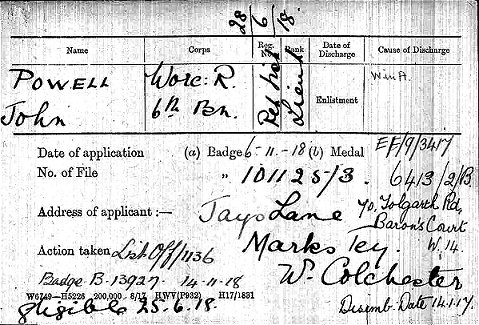 28/6/18.
Name Corps Reg. No. Rank Date of Discharge Cause of Discharge
POWELL Worc: R. Lieut W in A.
John 6th Bn. Enlistment
Date of application (a) Badge 6-11-18 (b) Medal EF/9/3417
No. of File " 101125/3. 6413/2/B.
Address of applicant:— Jays Lane 70. Tolgarth Rd,
Marks Tey. Baron's Court
W. 14
Action taken List Off/1136 W. Colchester
Badge B-13927. 14-11-18
W6749—H5225 200,000 8/17 HWV(P932) H17/1831 Disemb. Date 14.1.17.
eligible 25.6.18.